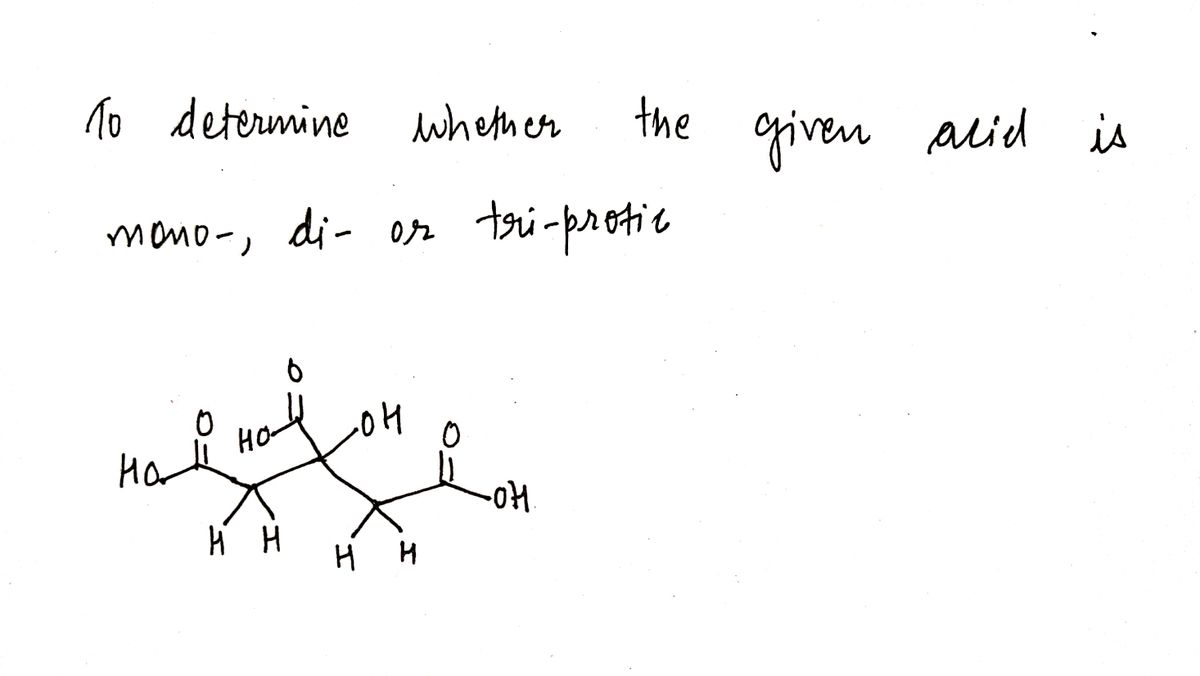 To determine whether the given acid is
mono-, di- or tri-protic
O
O HO OH O
HO OH
H H H H